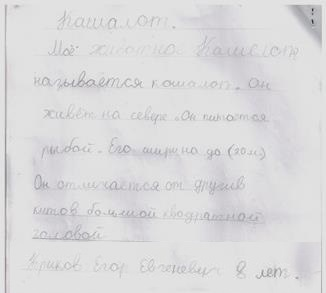 Кашалот.
Моё животное
называется кашалот. Он
живёт на севере. Он питается
рыбой. Его ширина до (20м)
Он отличается от других
китов большой квадратной
головой
Егор Евгеневич 8 лет.